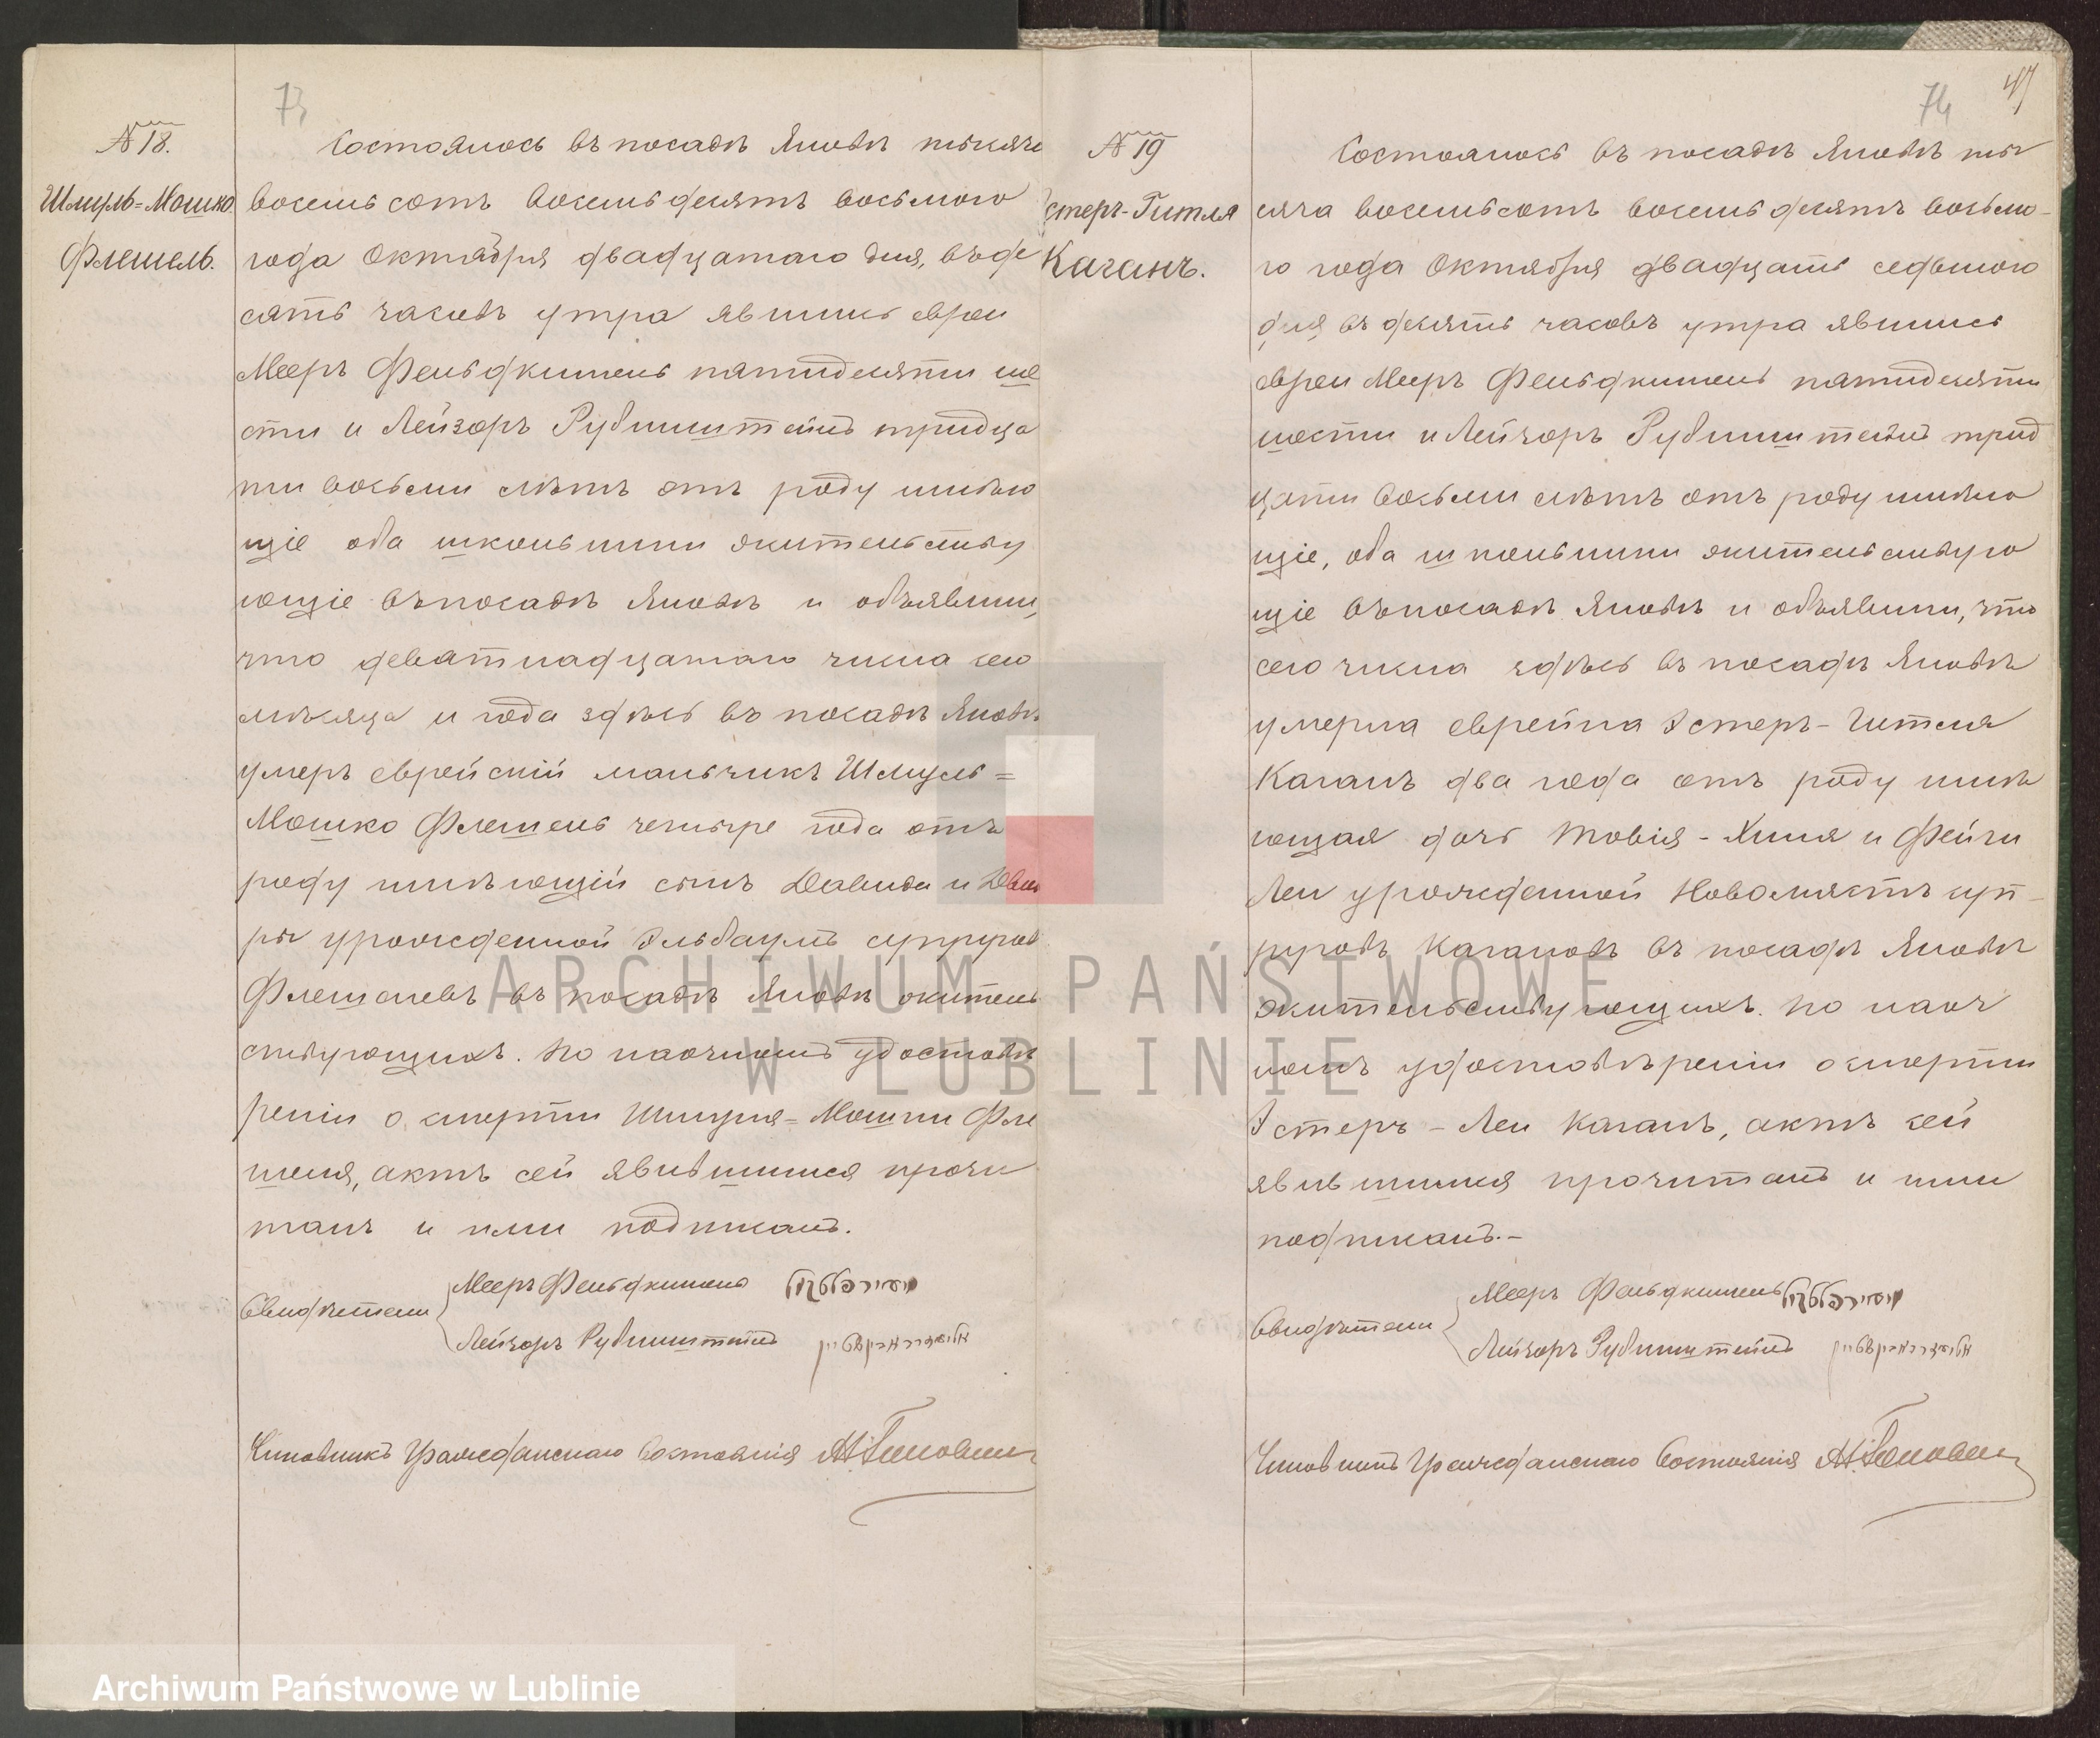 73
№ 18.
Шмуль=Мошко
Флешель.
Состоялось въ посадѣ Яновѣ тысяча
восемьсотъ восемьдесятъ восьмого
года Октября двадцатаго дня, въ де
сять часовъ утра явились евреи
Мееръ Фельдкишель пятидесяти ше
сти и Лейзоръ Рубинштейнъ тридца
ти восьми лѣтъ отъ роду имѣю
щіе оба школьники жительству
ющіе въ посадѣ Яновѣ и объявили,
что девятнадцатаго числа сего
мѣсяца и года здѣсь въ посадѣ Яновѣ
умеръ еврейскій мальчикъ Шмуль=
Мошко Флешель четыре года отъ
роду имѣющій сынъ Давида и Двой
ры урожденной Эльбаумъ супругов
Флешелевъ въ посадѣ Яновѣ житель
ствующихъ. По наочномъ удостовѣ
реніи о смерти Шмуля=Мошки Фле
шеля, актъ сей явившимся прочи
танъ и ими подписанъ.
Свидѣтели Мееръ Фельдкишель
Лейзоръ Рубинштейнъ
Чиновникъ Гражданскаго Состоянія
74
47
№ 19
Эстеръ-Гитля
Каганъ.
Состоялось въ посадѣ Яновѣ ты
сяча восемьсотъ восемьдесятъ восьмо-
го года Октября двадцать седьмого
дня въ десять часовъ утра явились
евреи Мееръ Фельдкишель пятидесяти
шести и Лейзоръ Рубинштейнъ трид
цати восьми лѣтъ отъ роду имѣю
щіе, оба школьники жительствую
щіе въ посадѣ Яновѣ и объявили, что
сего числа здѣсь въ посадѣ Яновѣ
умерла еврейка Эстеръ-Гитля
Каганъ два года отъ роду имѣ
ющая дочь Товія-Хиля и Фейги
Леи урожденной Новомястъ суп-
руговъ Кагановъ въ посадѣ Яновѣ
жительствующихъ. По наоч
номъ удостовѣреніи о смерти
Эстеръ-Леи Каганъ, актъ сей
явившимся прочитанъ и ими
подписанъ.-
Свидѣтели Мееръ Фельдкишель
Лейзоръ Рубинштейнъ
Чиновникъ Гражданскаго Состоянія
ARCHIWUM PAŃSTWOWE
W LUBLINIE
Archiwum Państwowe w Lublinie